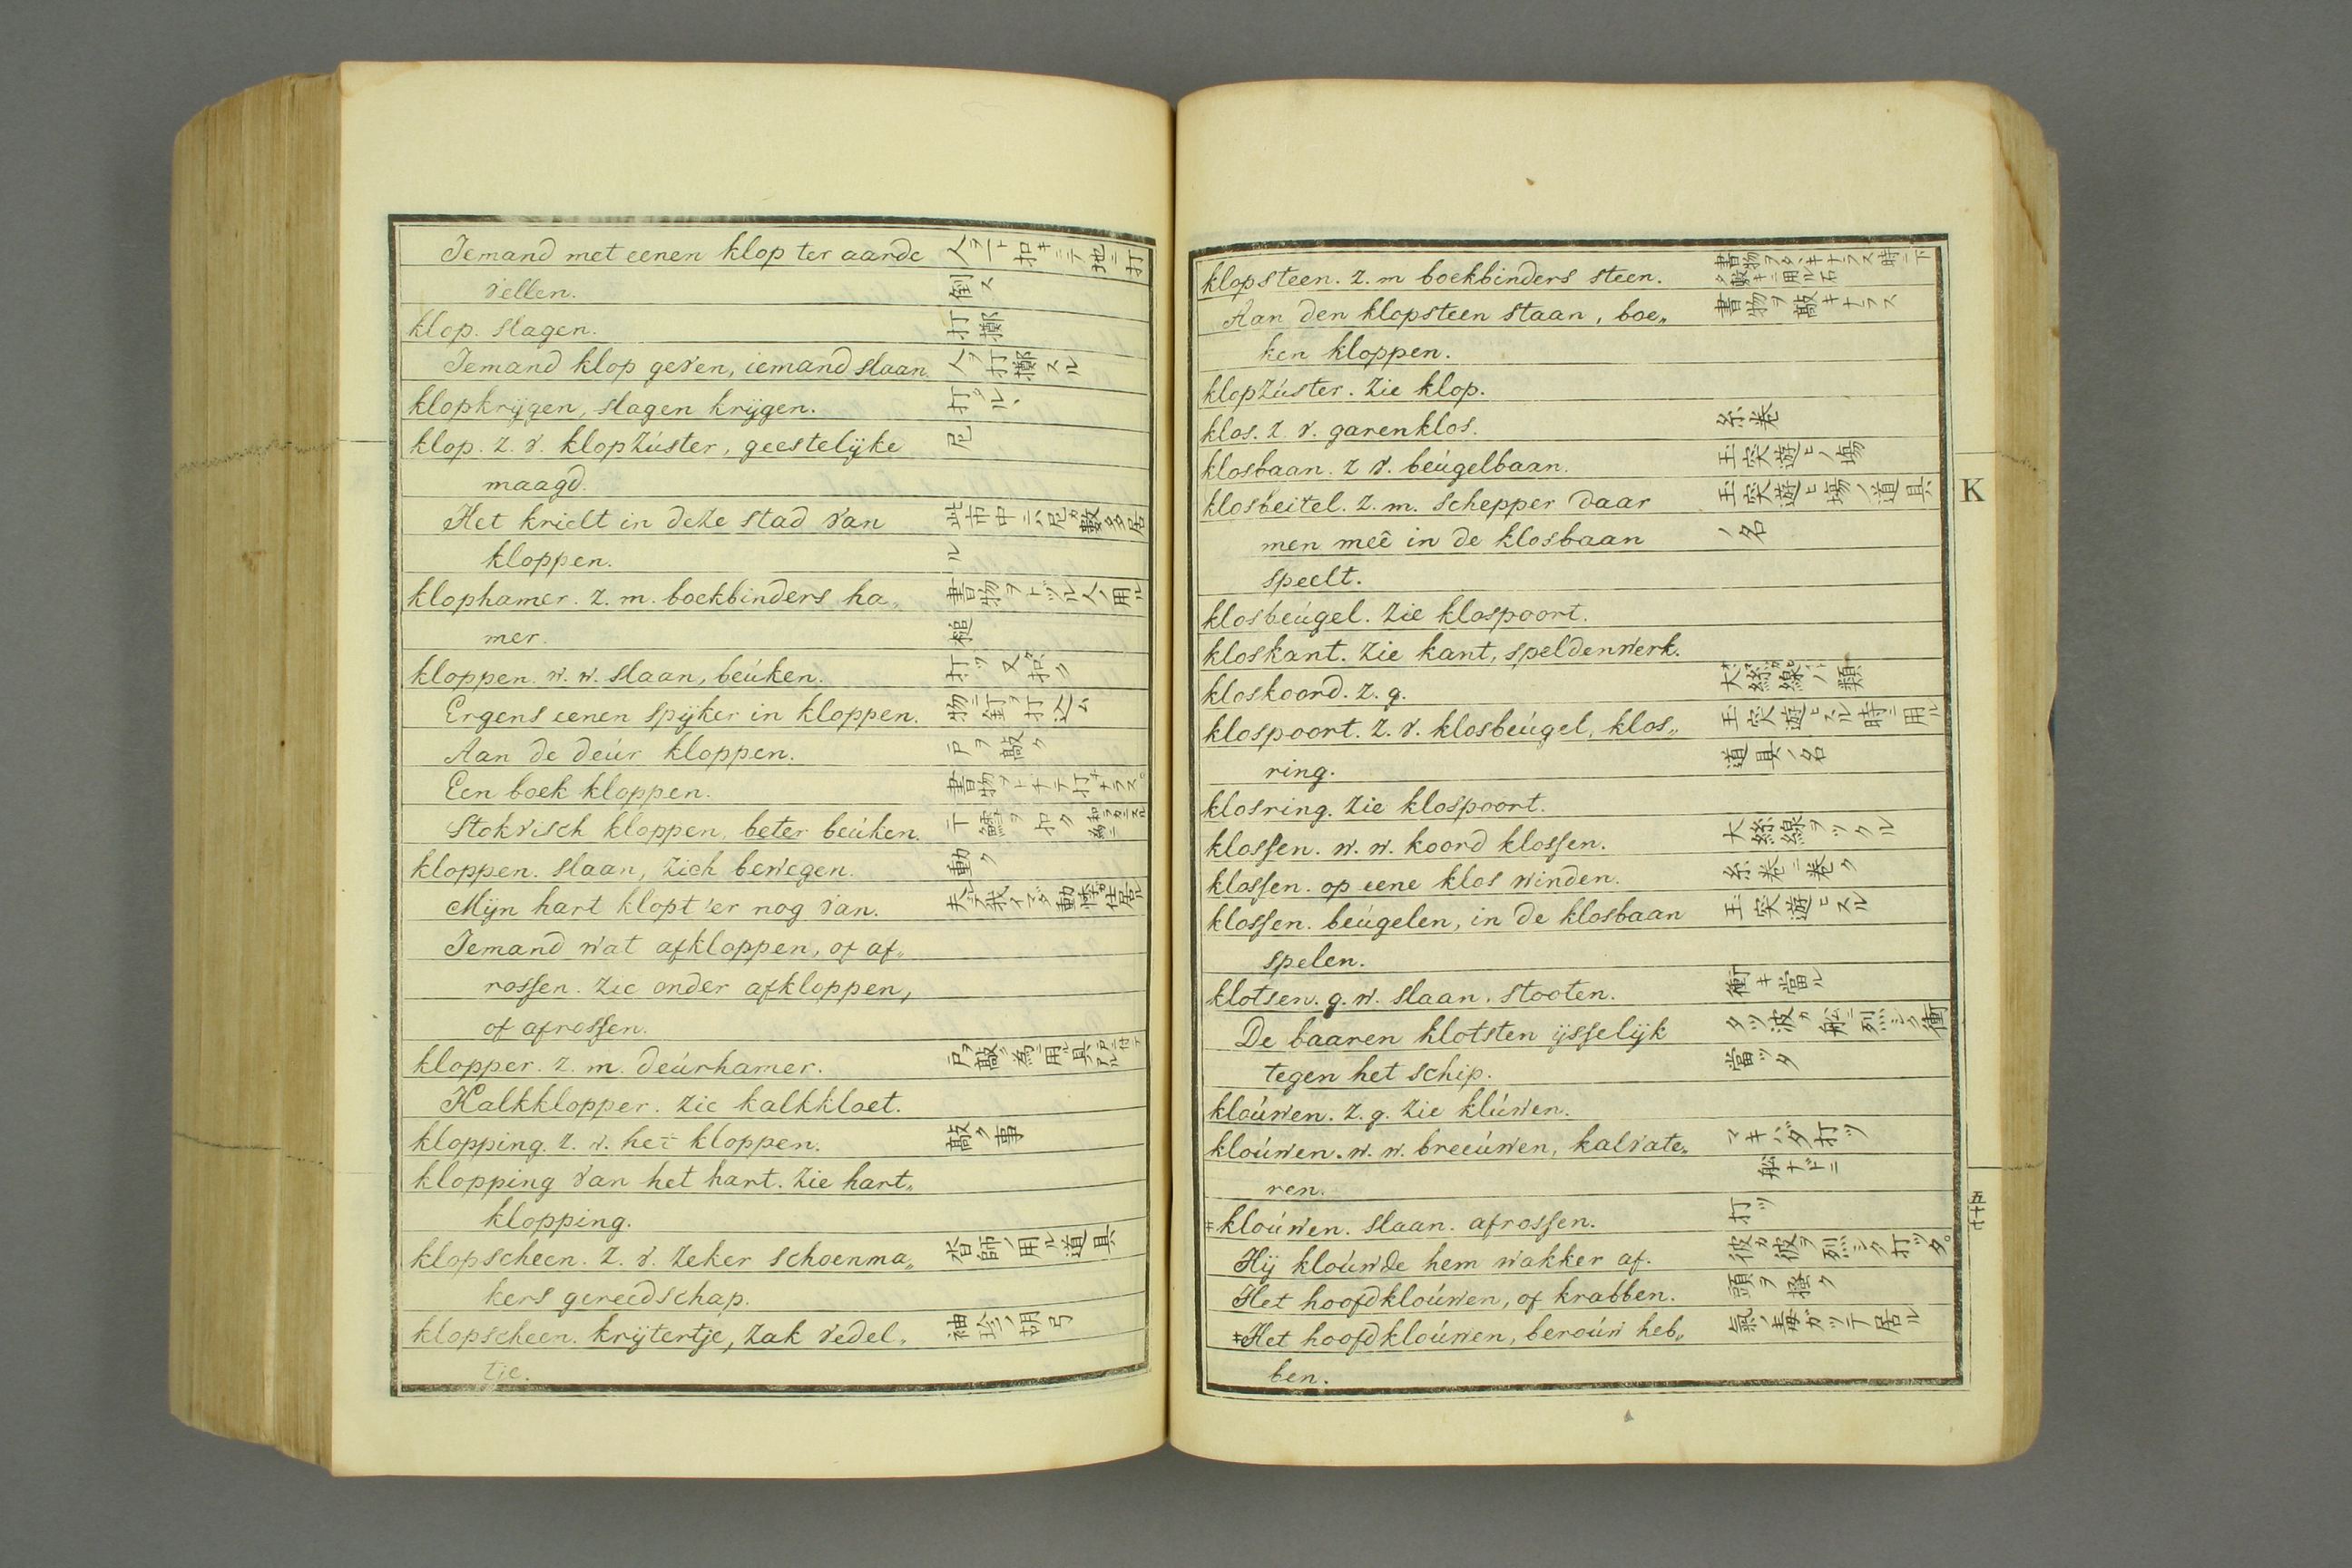 Iemand met eenen klop ter aarde 人ヲ一ト扣キニテ地ニ打
vellen. 倒ス
klop. slagen. 打擲
Iemand klop geven, iemand slaan. 人ヲ打擲スル
klopkrijgen, slagen krijgen. 打タルヽ
klop. z. v. klopzúster, geestelijke 尼
maagd.
Het krielt in deze stad van 此市中ニハ尼ガ數多居
kloppen. ル
klophamer. z. m. boekbinders ha„ 書物ヲトヅル人ノ用ル
mer. 槌
kloppen. w. w. slaan, beúken. 打ツ又扣ク
Ergens eenen spijker in kloppen. 物ニ釘ヲ打込ム
Aan de deúr kloppen. 戸ヲ敲ク
Een boek kloppen. 書物ヲトチテ打キナラス。
Stokvisch kloppen, beter beúken. 干鱈ヲ扣ク
kloppen. slaan, zich bewegen. 動ク
Mijn hart klopt 'er nog van.
Iemand wat afkloppen, of af„
rossen. zie onder afkloppen,
of afrossen.
klopper. z. m. deúrhamer. 戸ヲ敲ク為ニ用ル具
Kalkklopper. zie kalkkloet.
klopping. z. v. het kloppen. 敲ク事
klopping van het hart. zie hart„
klopping.
klopscheen. z. v. zeker schoenma„ 沓師ノ用ル道具
kers gereedschap.
klopscheen. krijtertje, zak vedel„ 袖珍ノ胡弓
tje.
klopsteen. z. m boekbinders steen. 書物ヲタヽキナラス時ニ下タ敷キニ用ル石
Aan den klopsteen staan, boe„ 書物ヲ敲キナラス
ken kloppen.
klopzúster. zie klop.
klos. z. v. garenklos. 糸巻
klosbaan. z v. beúgelbaan. 玉突遊ヒノ場
klosbeitel. z. m. schepper daar 玉突遊ヒ場ノ道具
men meê in de klosbaan ノ名
speelt.
klosbeúgel. zie klospoort.
kloskant. zie kant, speldenwerk.
kloskoord. z. g.
klospoort. z. v. klosbeúgel, klos„ 玉突遊ヒスル時ニ用ル
ring. 道具ノ名
klosring. zie klospoort.
klossen. w. w. koord klossen. 大絲線ヲツクル
klossen. op eene klos winden. 糸巻ニ巻ク
klossen. beúgelen, in de klosbaan 玉突遊ヒスル
spelen.
klotsen. g. w. slaan. stooten. 衝キ當ル
De baaren klotsten ijsselijk タツ波カ舩ニ烈シク衝
tegen het schip. 當ツタ
kloúwen. z. g. zie klúwen.
kloúwen. w. w. breeúwen, kalvate„ マキハダ打ツ
ren. 舩ナドニ
‡kloúwen. slaan. afrossen. 打ツ
Hij kloúwde hem wakker af. 彼カ彼ヲ烈シク打ツタ。
Het hoofd kloúwen, of krabben. 頭ヲ搔ク
‡Het hoofd kloúwen, beroúw heb„ 氣ノ毒ガツテ居ル
ben.
K
五十七